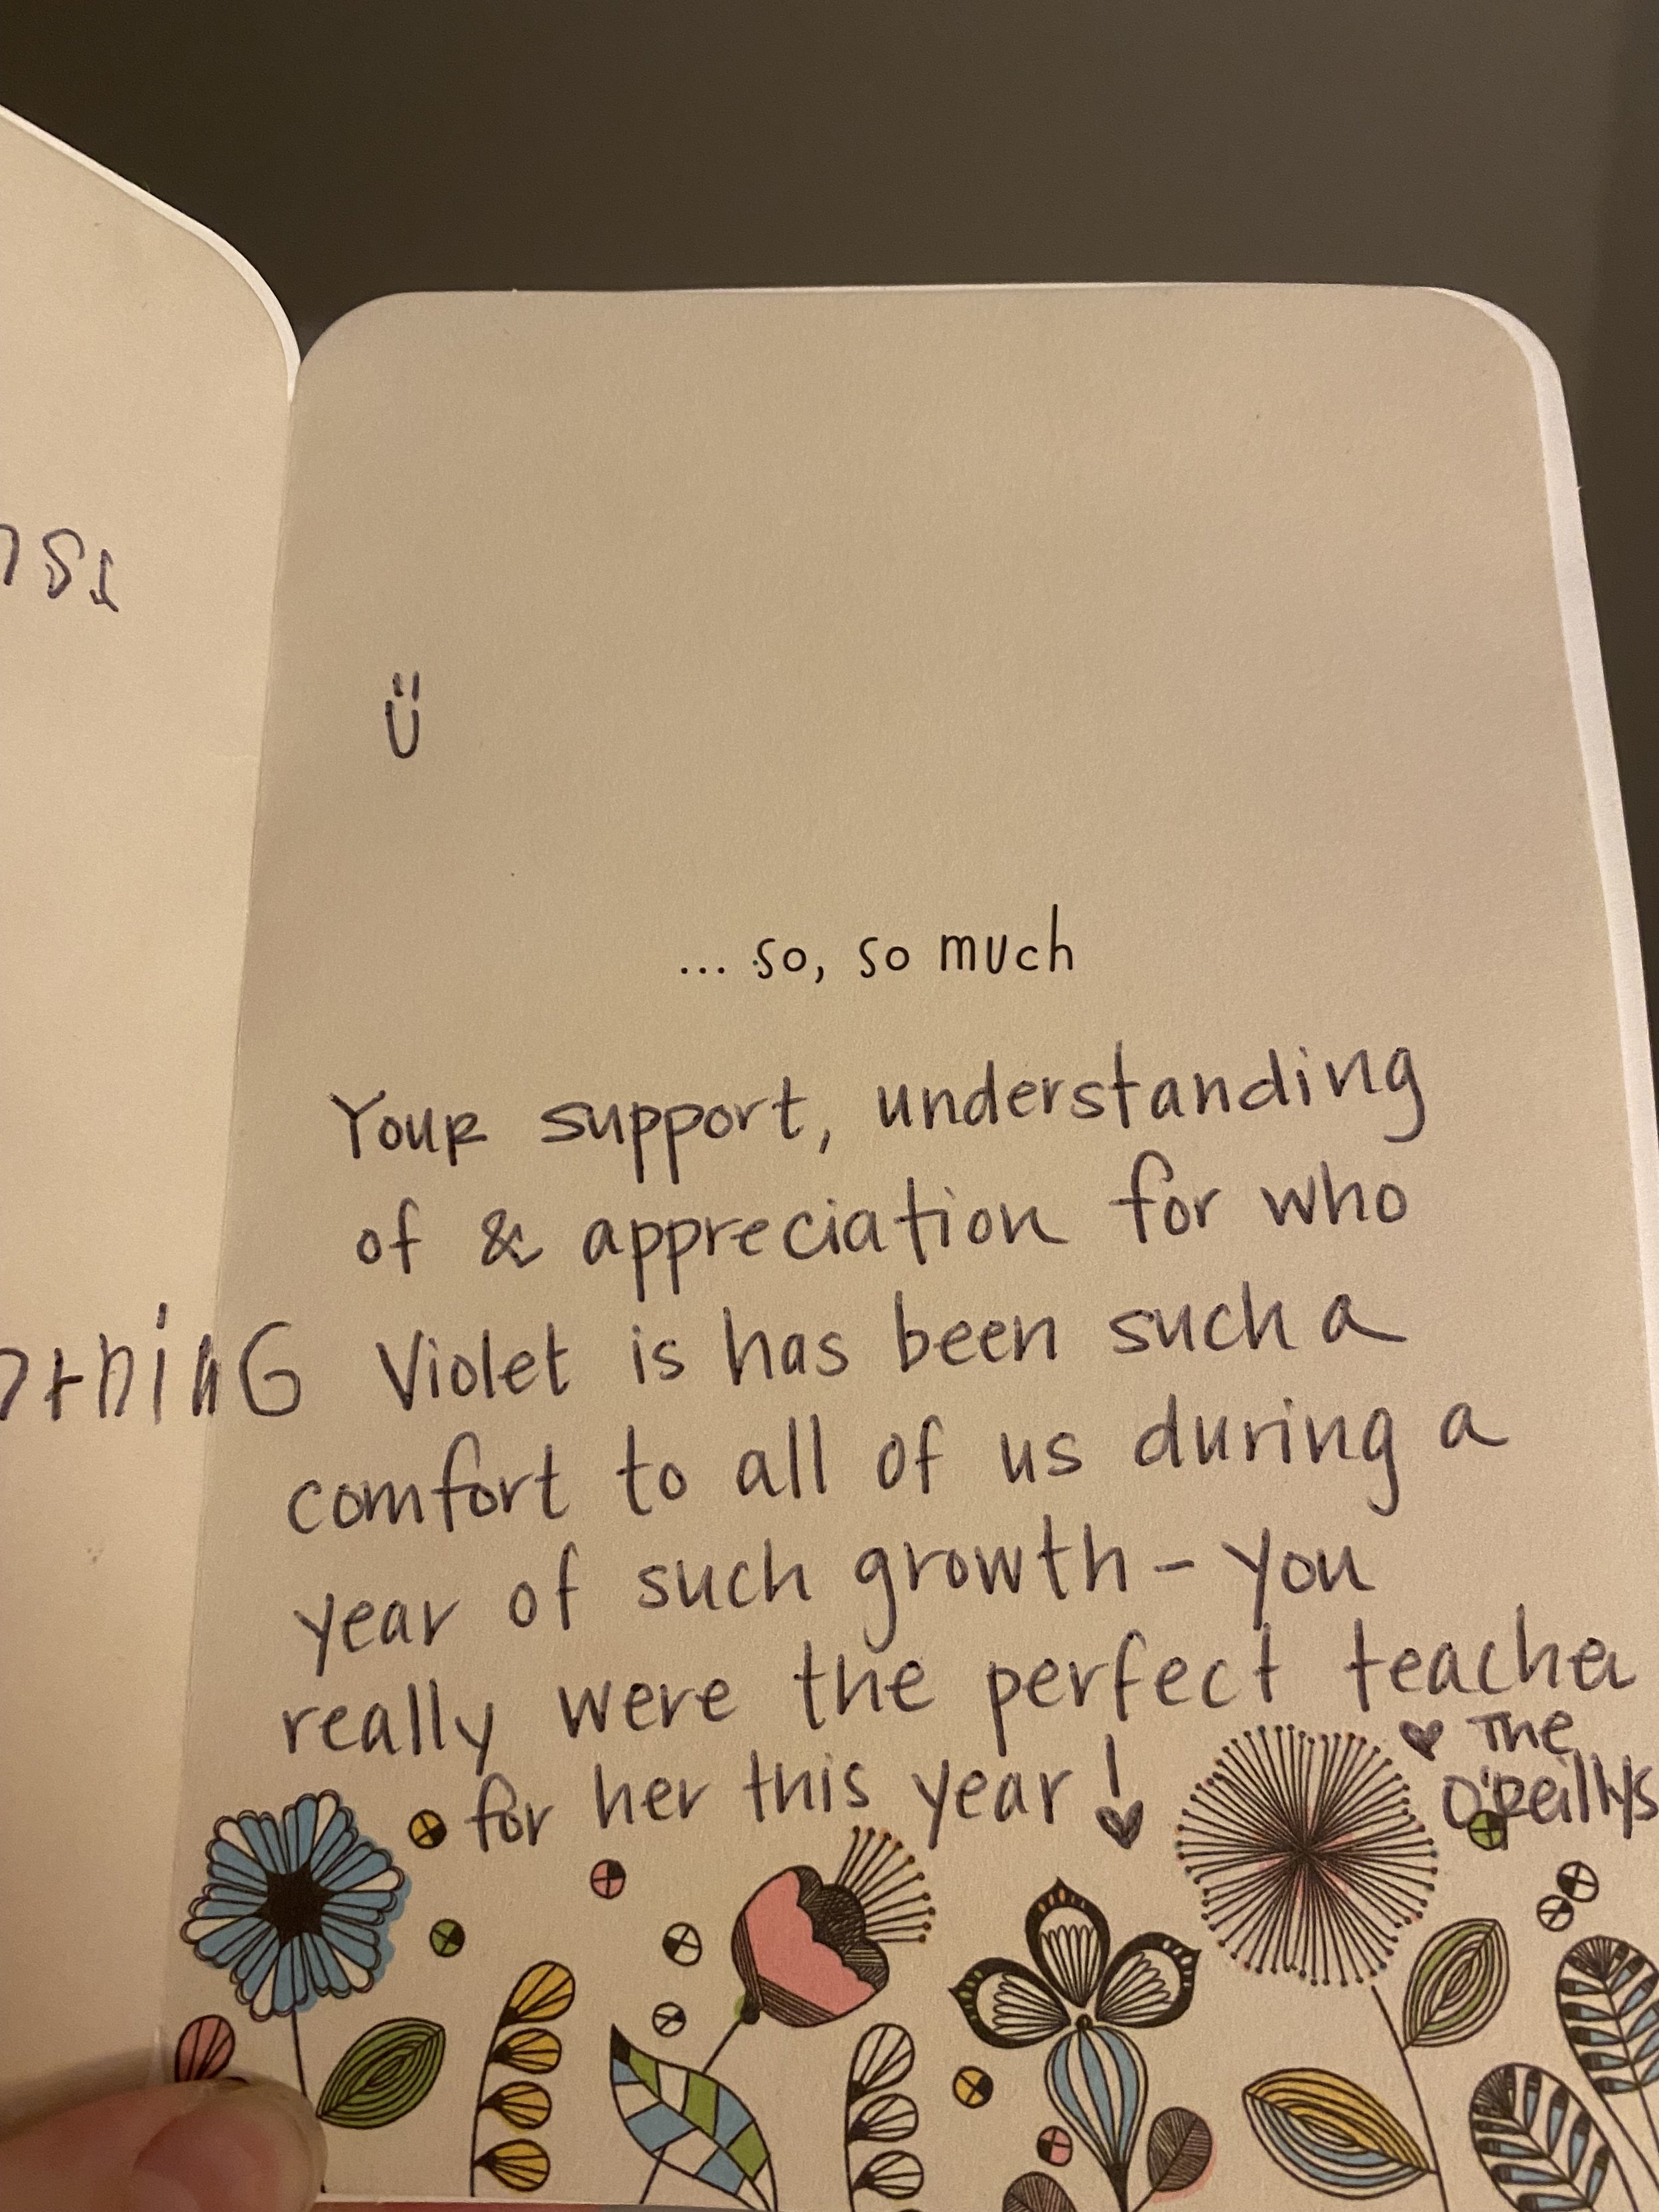 Ü
... so, so much
Your support, understanding
of & appreciation for who
Violet is has been such a
comfort to all of us during a
year of such growth - you
really were the perfect teacher
for her this year!
♥ The
O'Reillys